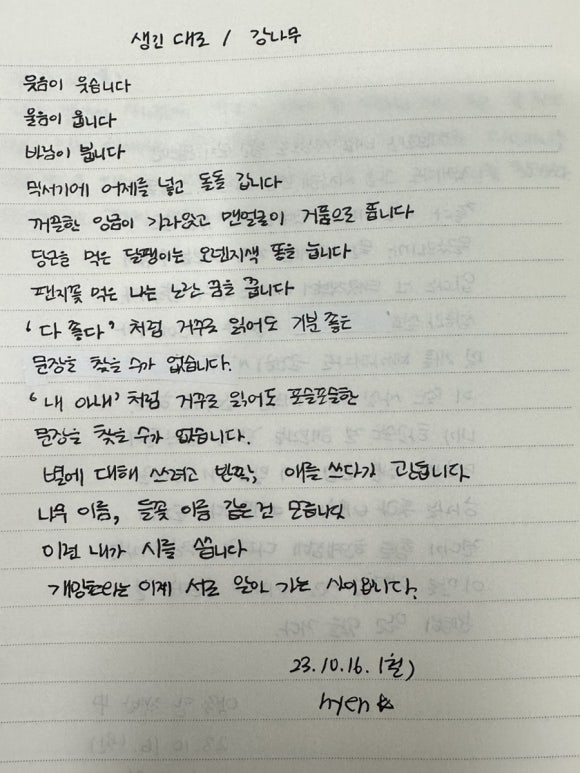 생긴 대로 / 강나무
웃음이 웃습니다
울음이 웁니다
바님이 봅니다
믹서기에 어제를 넣고 돌돌 갑니다
꺼끌한 앙금이 가라앉고 맨얼굴이 거품으로 뜹니다
당근을 먹은 달팽이는 오렌지색 똥을 눕니다
팬지꽃 먹은 나는 노란 꿈을 꿉니다
'다 좋다' 처럼 거꾸로 읽어도 기분 좋은
문장을 찾을 수가 없습니다.
'내 아내' 처럼 거꾸로 읽어도 포슬포슬한
문장을 찾을 수가 없습니다.
별에 대해 쓰려고 반짝, 애를 쓰다가 관둡니다
나무 이름, 들꽃 이름 같은건 모릅니다
이런 내가 시를 씁니다
개망초와는 이제 서로 알아 가는 사이입니다.
23.10.16.(월)
hyen☆